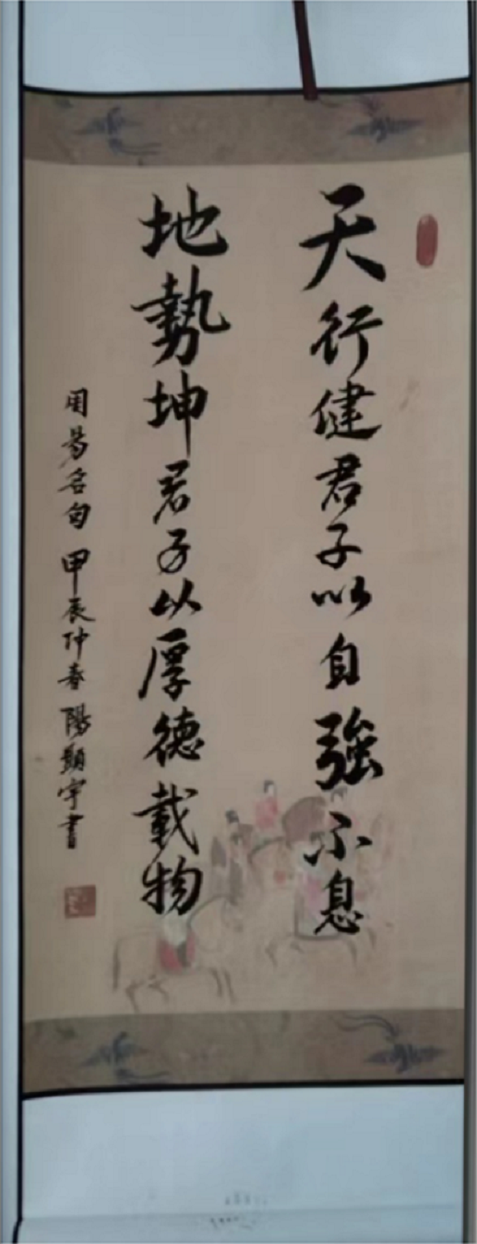 天行健君子以自強不息
地勢坤君子以厚德載物
周易名句 甲辰仲春 陽顯宇書